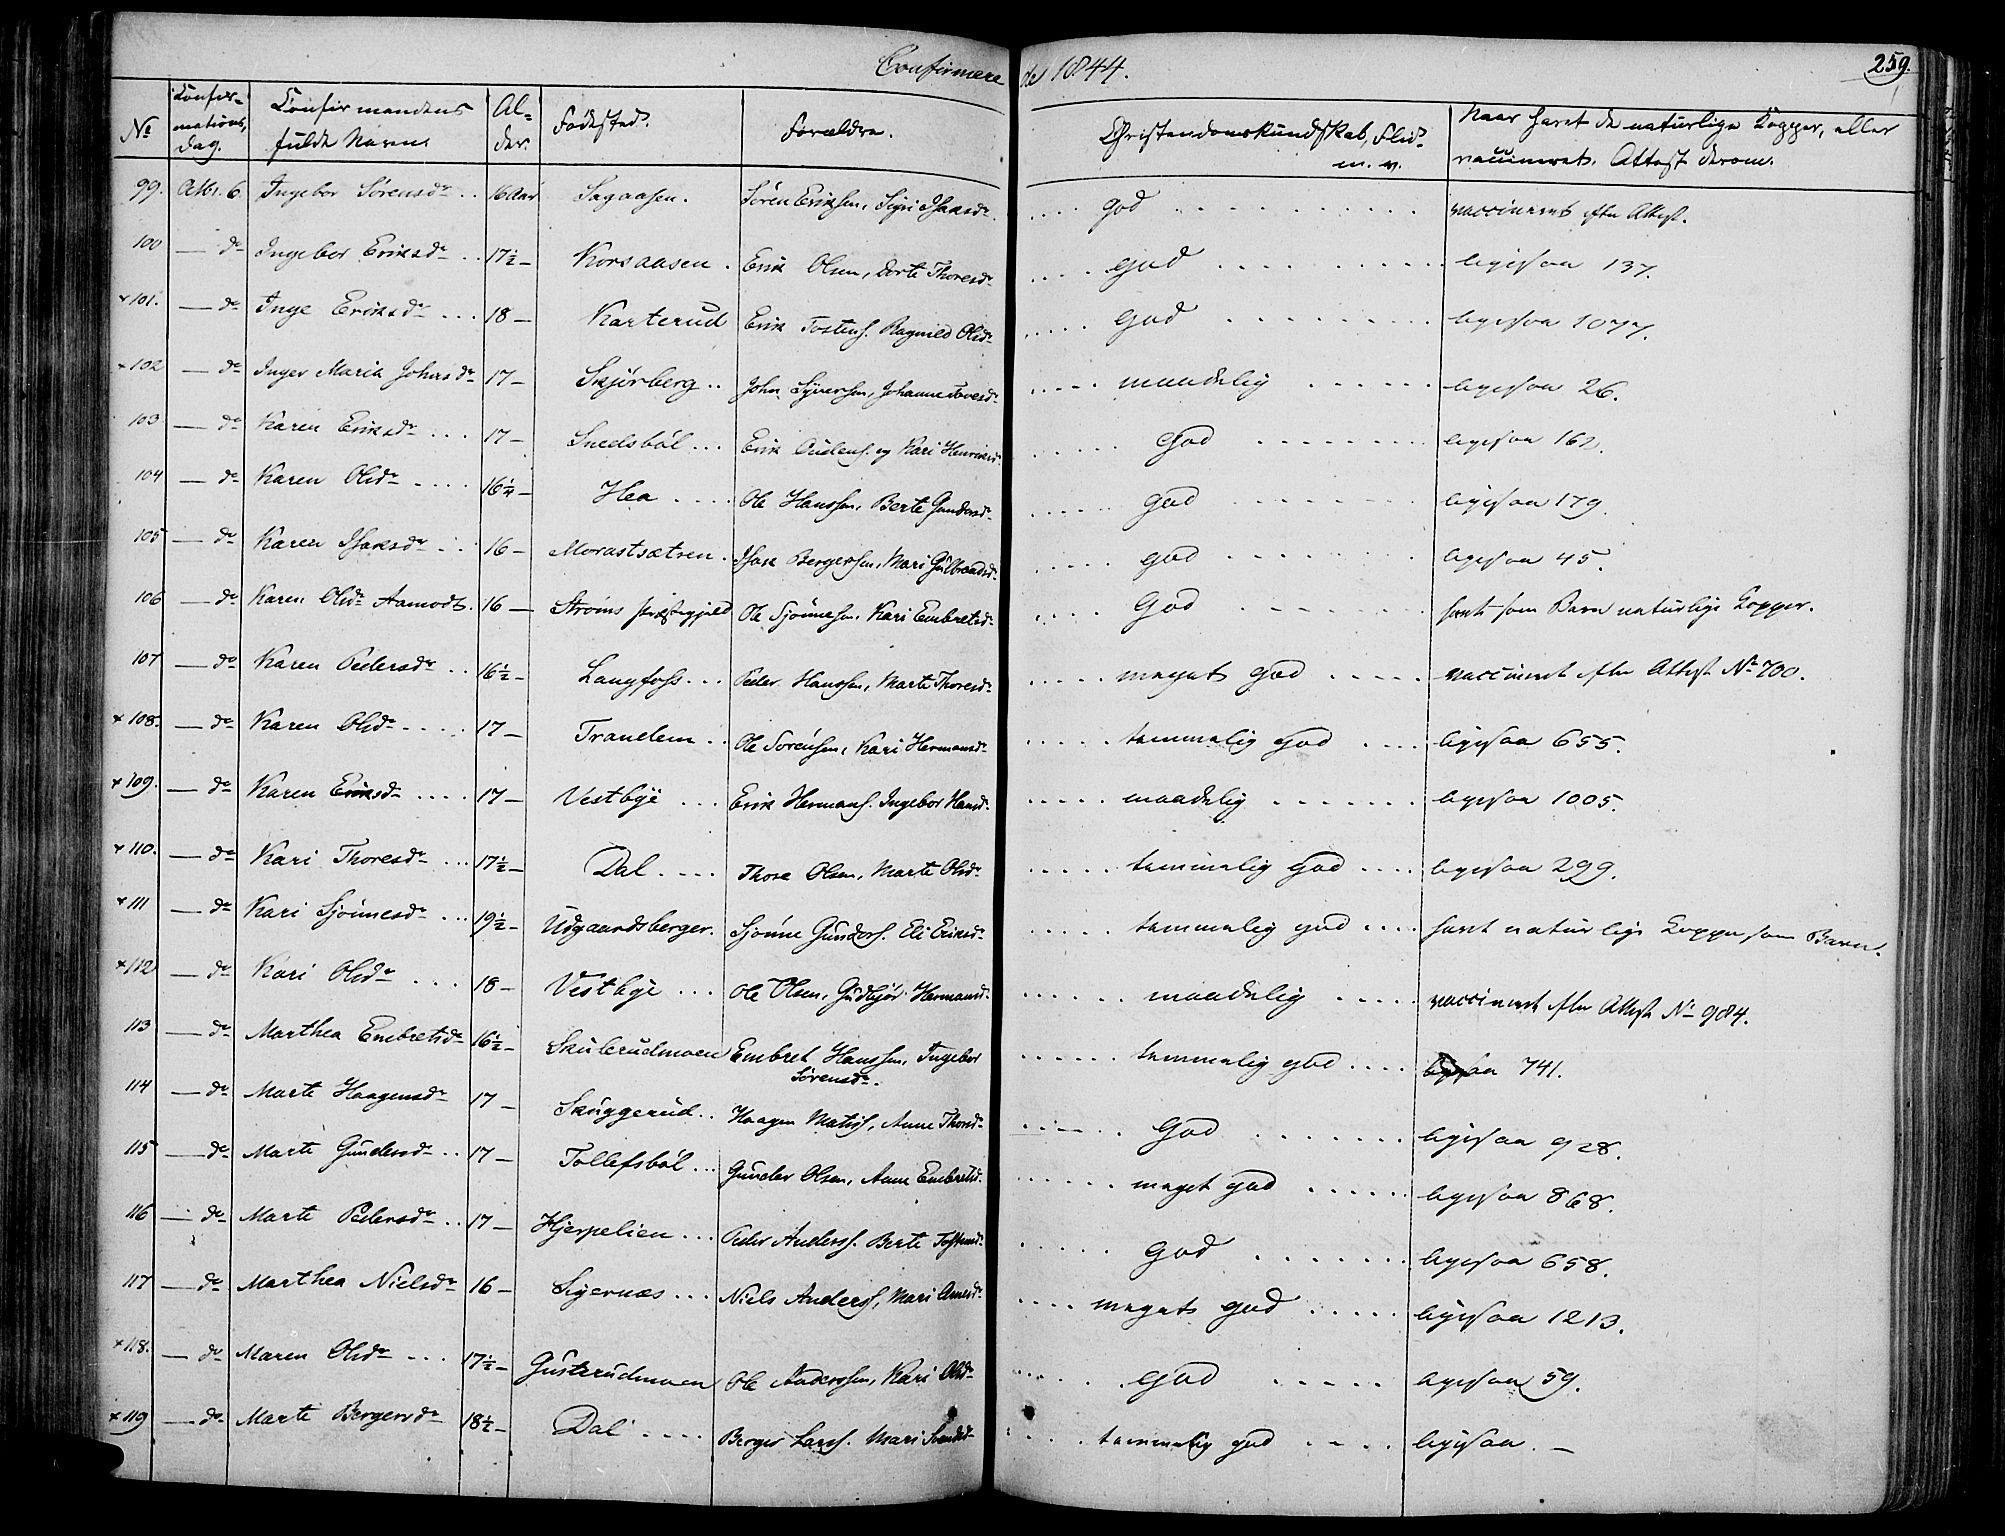 Confirmerede 1844.
259.
No Confirmations Dag. Confirmandens fulde Navn. Alder. Fødested. Forældre. Christendomskundskab, Flid m. v. Naar havt de naturlige Kopper, eller vaccineret. Attest derom.
99. Octbr. 6. Ingebor Sørensdr .. 16 Aar Sagaasen. Sören Eriksen, Sigri Isaksdr. .... god ........ vaccineret efter Attest.
100 — do Ingebor Eriksdr .. 17½ — Korsaasen. Erik Olsen, Dorte Thoresdr .... god ........ ligesaa 137.
×101. — do Inge Eriksdr ... 18 — Karterud Erik Tostens. Ragnild Olsdr .... god ........ ligesaa 1077.
×102 — do Inger Maria Johnsdr 17 — Skjørberg .. John Syversen, Johanne Tovesdr .... maadelig ...... ligesaa 26.
103 — do Karen Eriksdr ... 17 — Snedsböl ... Erik Audens. og Kari Henriksd. ..... God ........ ligesaa 162.
104 — do Karen Olsdr .... 16¼ — Hea .... Ole Hanssen, Berte Gundersdr ..... god ........ ligesaa 179.
105 — do Karen Isaksdr ... 16 — Morastsætren. Isak Bergersen, Mari Gulbrandsdr ..... god ........ ligesaa 45.
106 — do Karen Olsdr Aamodt. 16 — Strøms Præstegjeld Ole Sjönnesen, Kari Embretsdr .... God ....... havt som Barn naturlige Kopper.
107 — do Karen Pedersdr .. 16½ — Langfoss ... Peder Hanssen, Marte Thoresdr ..... meget god ..... vaccineret efter Attest No 700.
×108. — do Karen Olsdr .... 17 — Trandem .. Ole Sorensen, Kari Hermansdr ..... temmelig god .... ligesaa 655.
×109. — do Karen Eriksd .... 17 — Vestbye ... Erik Hermans. Ingebor Hansd. ..... maadelig ....... ligesaa 1005.
×110. — do Kari Thoresdr ... 17½ — Dal .... Thore Olsen, Marte Olsdr ..... temmelig god .... ligesaa 299.
×111 — do Kari Sjönnesdr ... 19½ — Udgaardsberger. Sjönne Gunders. Eli Eriksdr ..... temmelig god .... havt naturlige Kopper som Barn.
×112 — do Kari Olsdr ... 18 — Vestbye ... Ole Olsen, Gudbjör Hermansd. ...... maadelig ..... vaccineret efter Attest No 984.
113 — do Marthea Embretsdr 16½ — Skulerudmoen Embret Hanssen, Ingebor Sörensdr. ...... temmelig god .... ligesaa 741.
114 — do Marte Haagensdr 17 — Skuggerud .. Haagen Matis., Anne Thorsdr ...... God ....... ligesaa 928.
115 — do Marte Gundersdr .. 17 — Tollefsböl ... Gunder Olsen, Anne Embretsd. ...... meget god ...... ligesaa 868.
116 — do Marte Pedersdr .. 17 — Hjerpelien ... Peder Anderss. Berte Tostensdr ..... God ....... ligesaa 658.
117 — do Marthea Nielsdr 16 — Sigernæs ... Niels Anderss, Mari Arnesdr .... meget god ..... ligesaa 1213.
×118. — do Maren Olsdr ... 17½ — Gusterudmoen Ole Anderssen, Kari Olsdr .... god ..... ligesaa 59.
×119 — do Marte Bergersdr 18½ — Dal .... Berger Larss. Mari Svendsdr .... temmelig god .... ligesaa. —